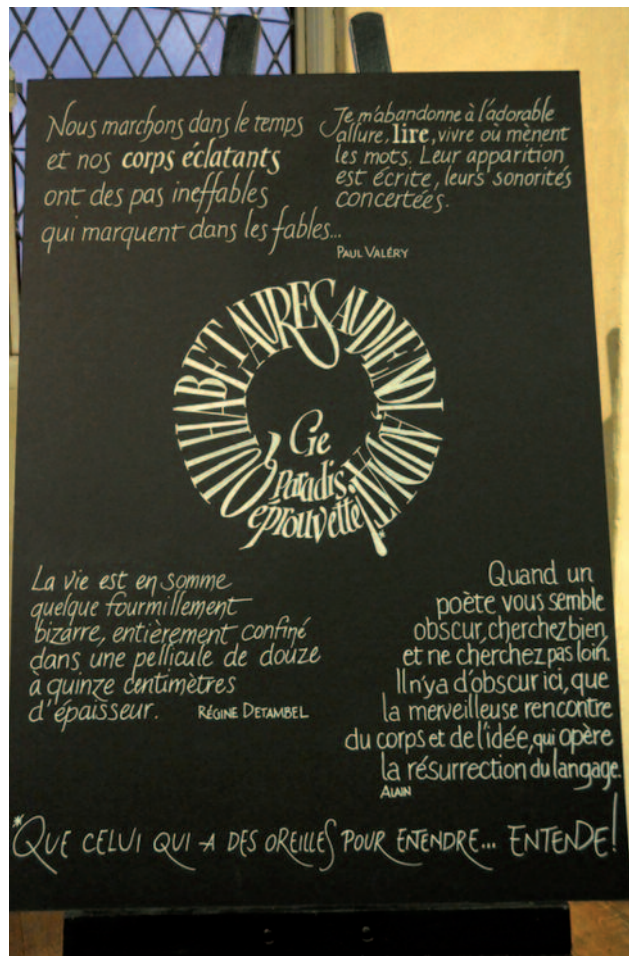 Nous marchons dans le temps
et nos corps éclatants
ont des pas ineffables
qui marquent dans les fables...
Je m'abandonne à l'adorable
allure, lire, vivre où mènent
les mots. Leur apparition
est écrite, leurs sonorités
concertées.
PAUL VALÉRY
QUI HABET AURES AUDIENDI, AUDIAT*
Ce
paradis
éprouvette
La vie est en somme
quelque fourmillement
bizarre, entièrement confiné
dans une pellicule de douze
à quinze centimètres
d'épaisseur. RÉGINE DETAMBEL
Quand un
poète vous semble
obscur, cherchez bien,
et ne cherchez pas loin.
Il n'y a d'obscur ici, que
la merveilleuse rencontre
du corps et de l'idée, qui opère
la résurrection du langage.
ALAIN
*QUE CELUI QUI A DES OREILLES POUR ENTENDRE... ENTENDE!